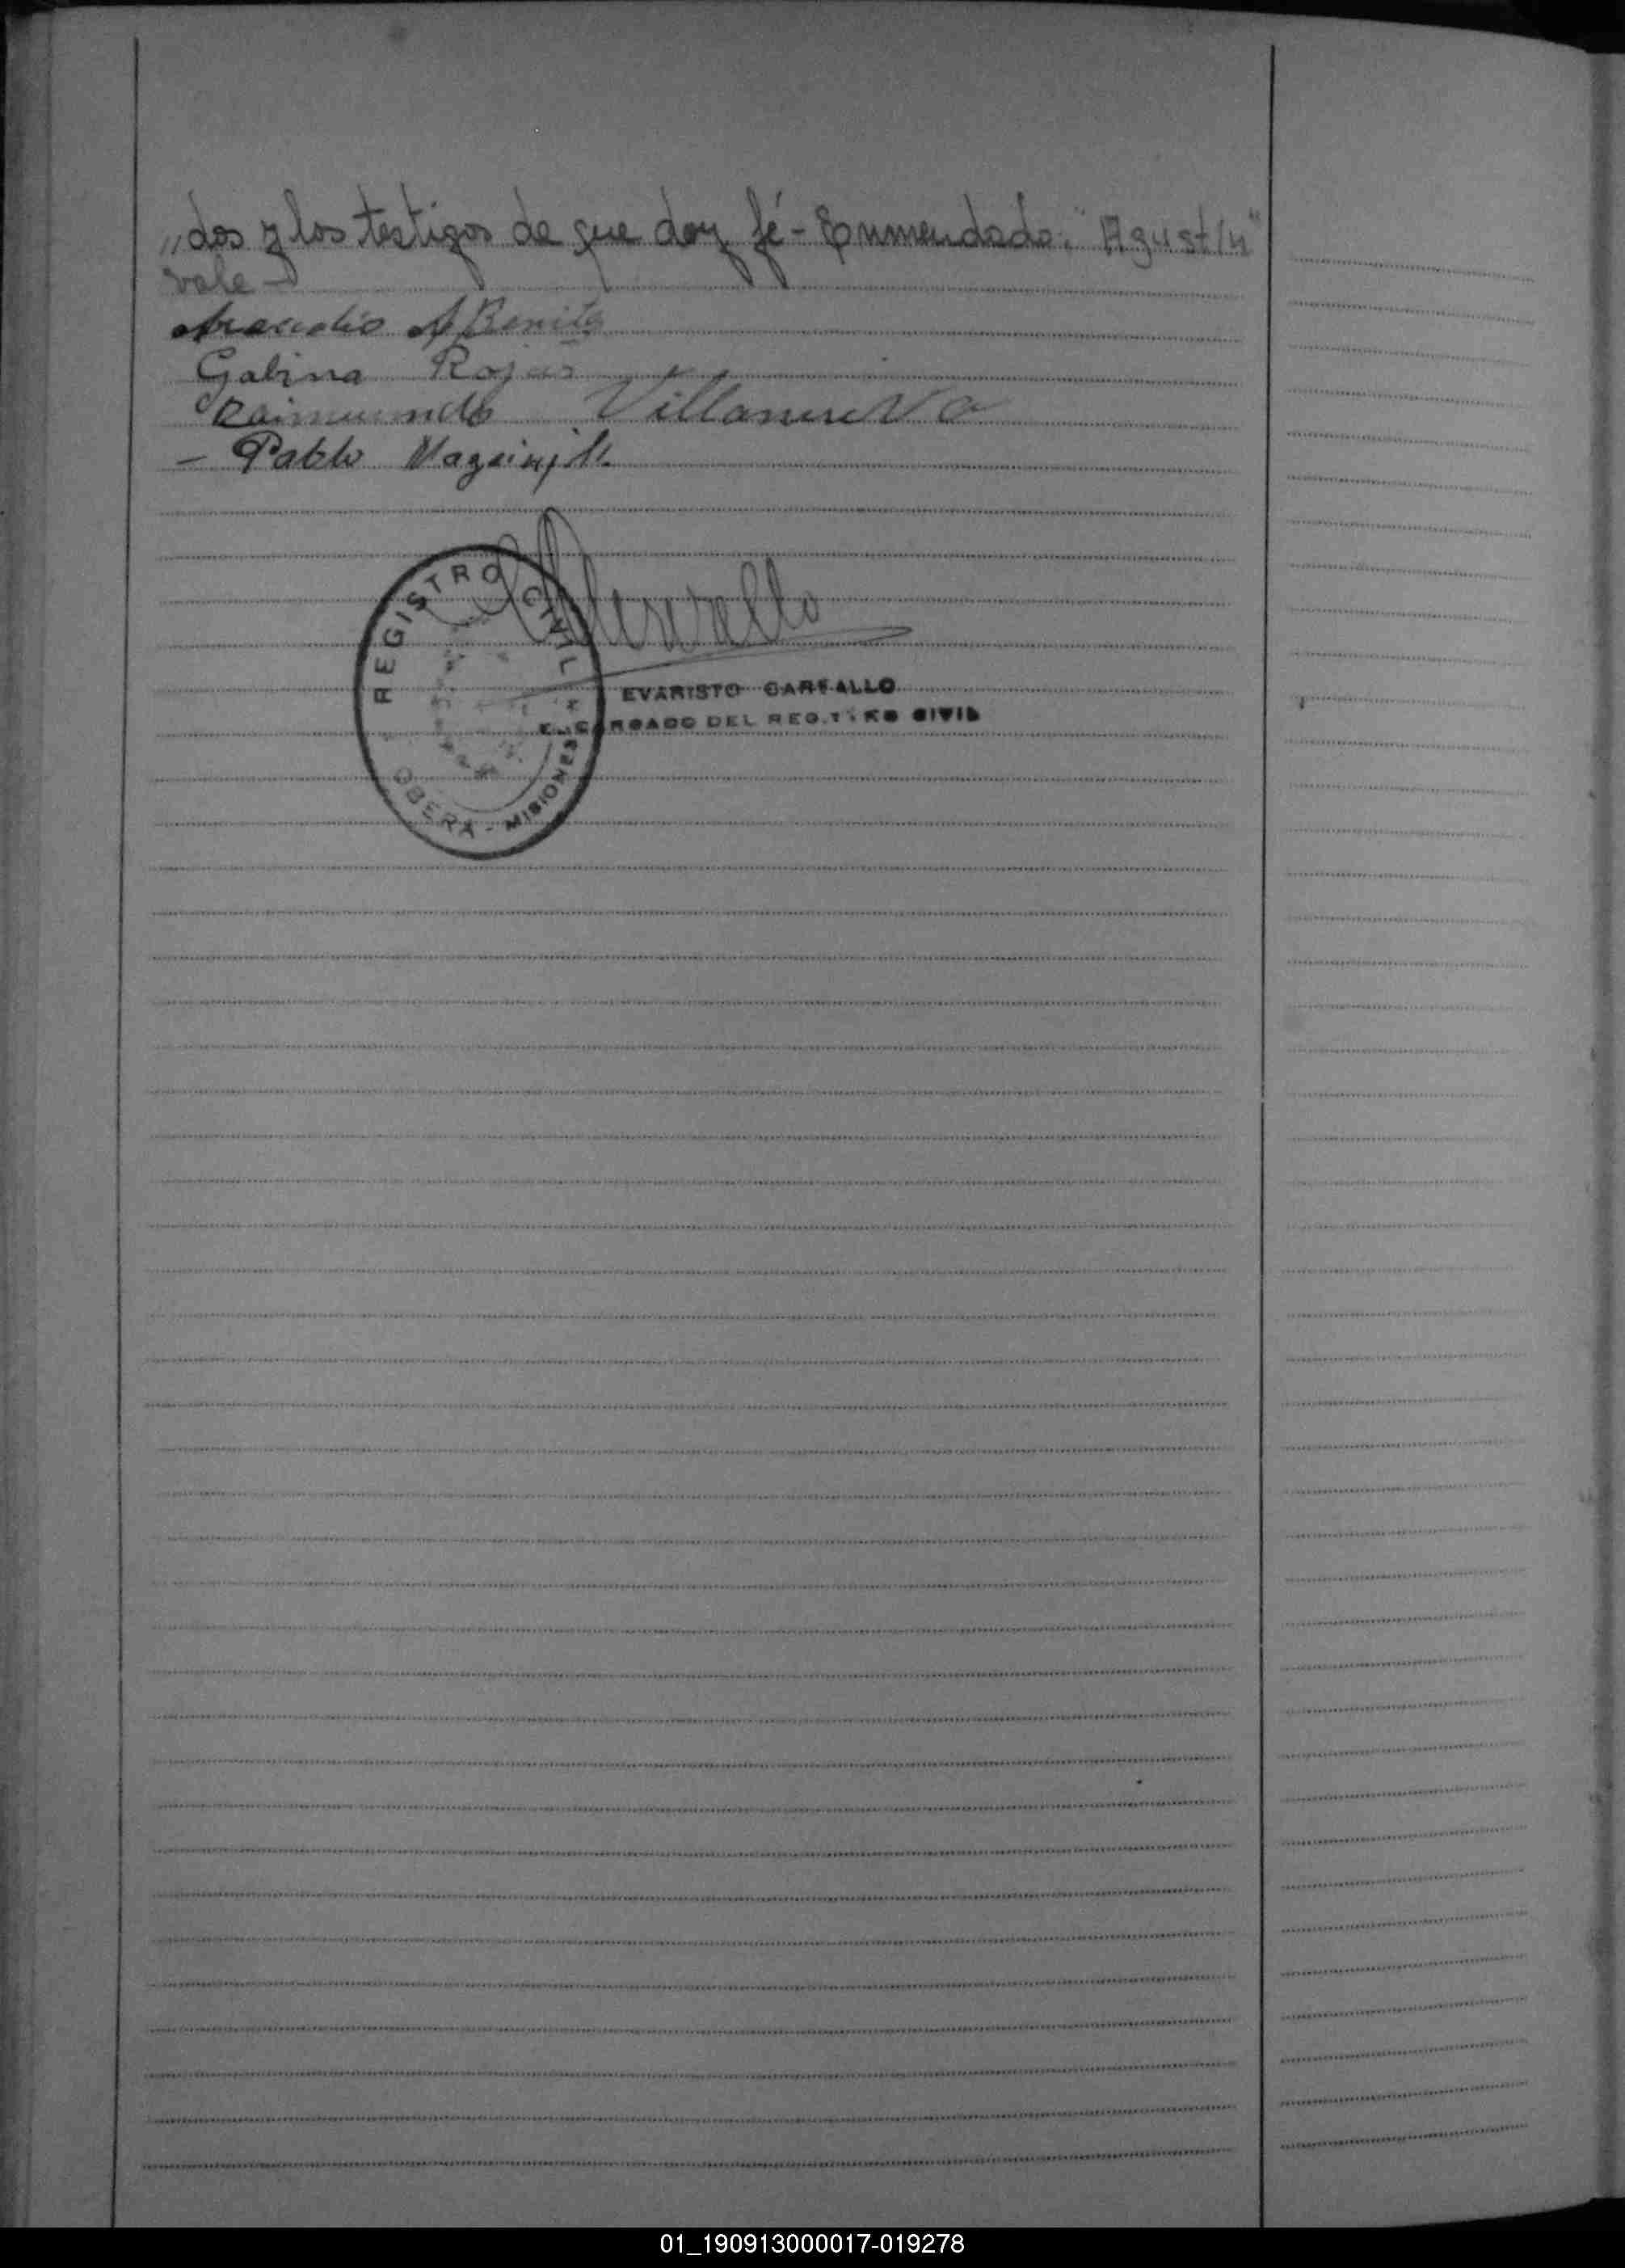 „dos y los testigos de que doy fé - Enmendado: "Agustín"
vale -
Arcadio A Benite
Gabina Rojas
Raimundo Villanueva
- Pablo
REGISTRO CIVIL
OBERA - MISIONES
EVARISTO CARFALLO
ENCARGADO DEL REGISTRO CIVIL
01_190913000017-019278